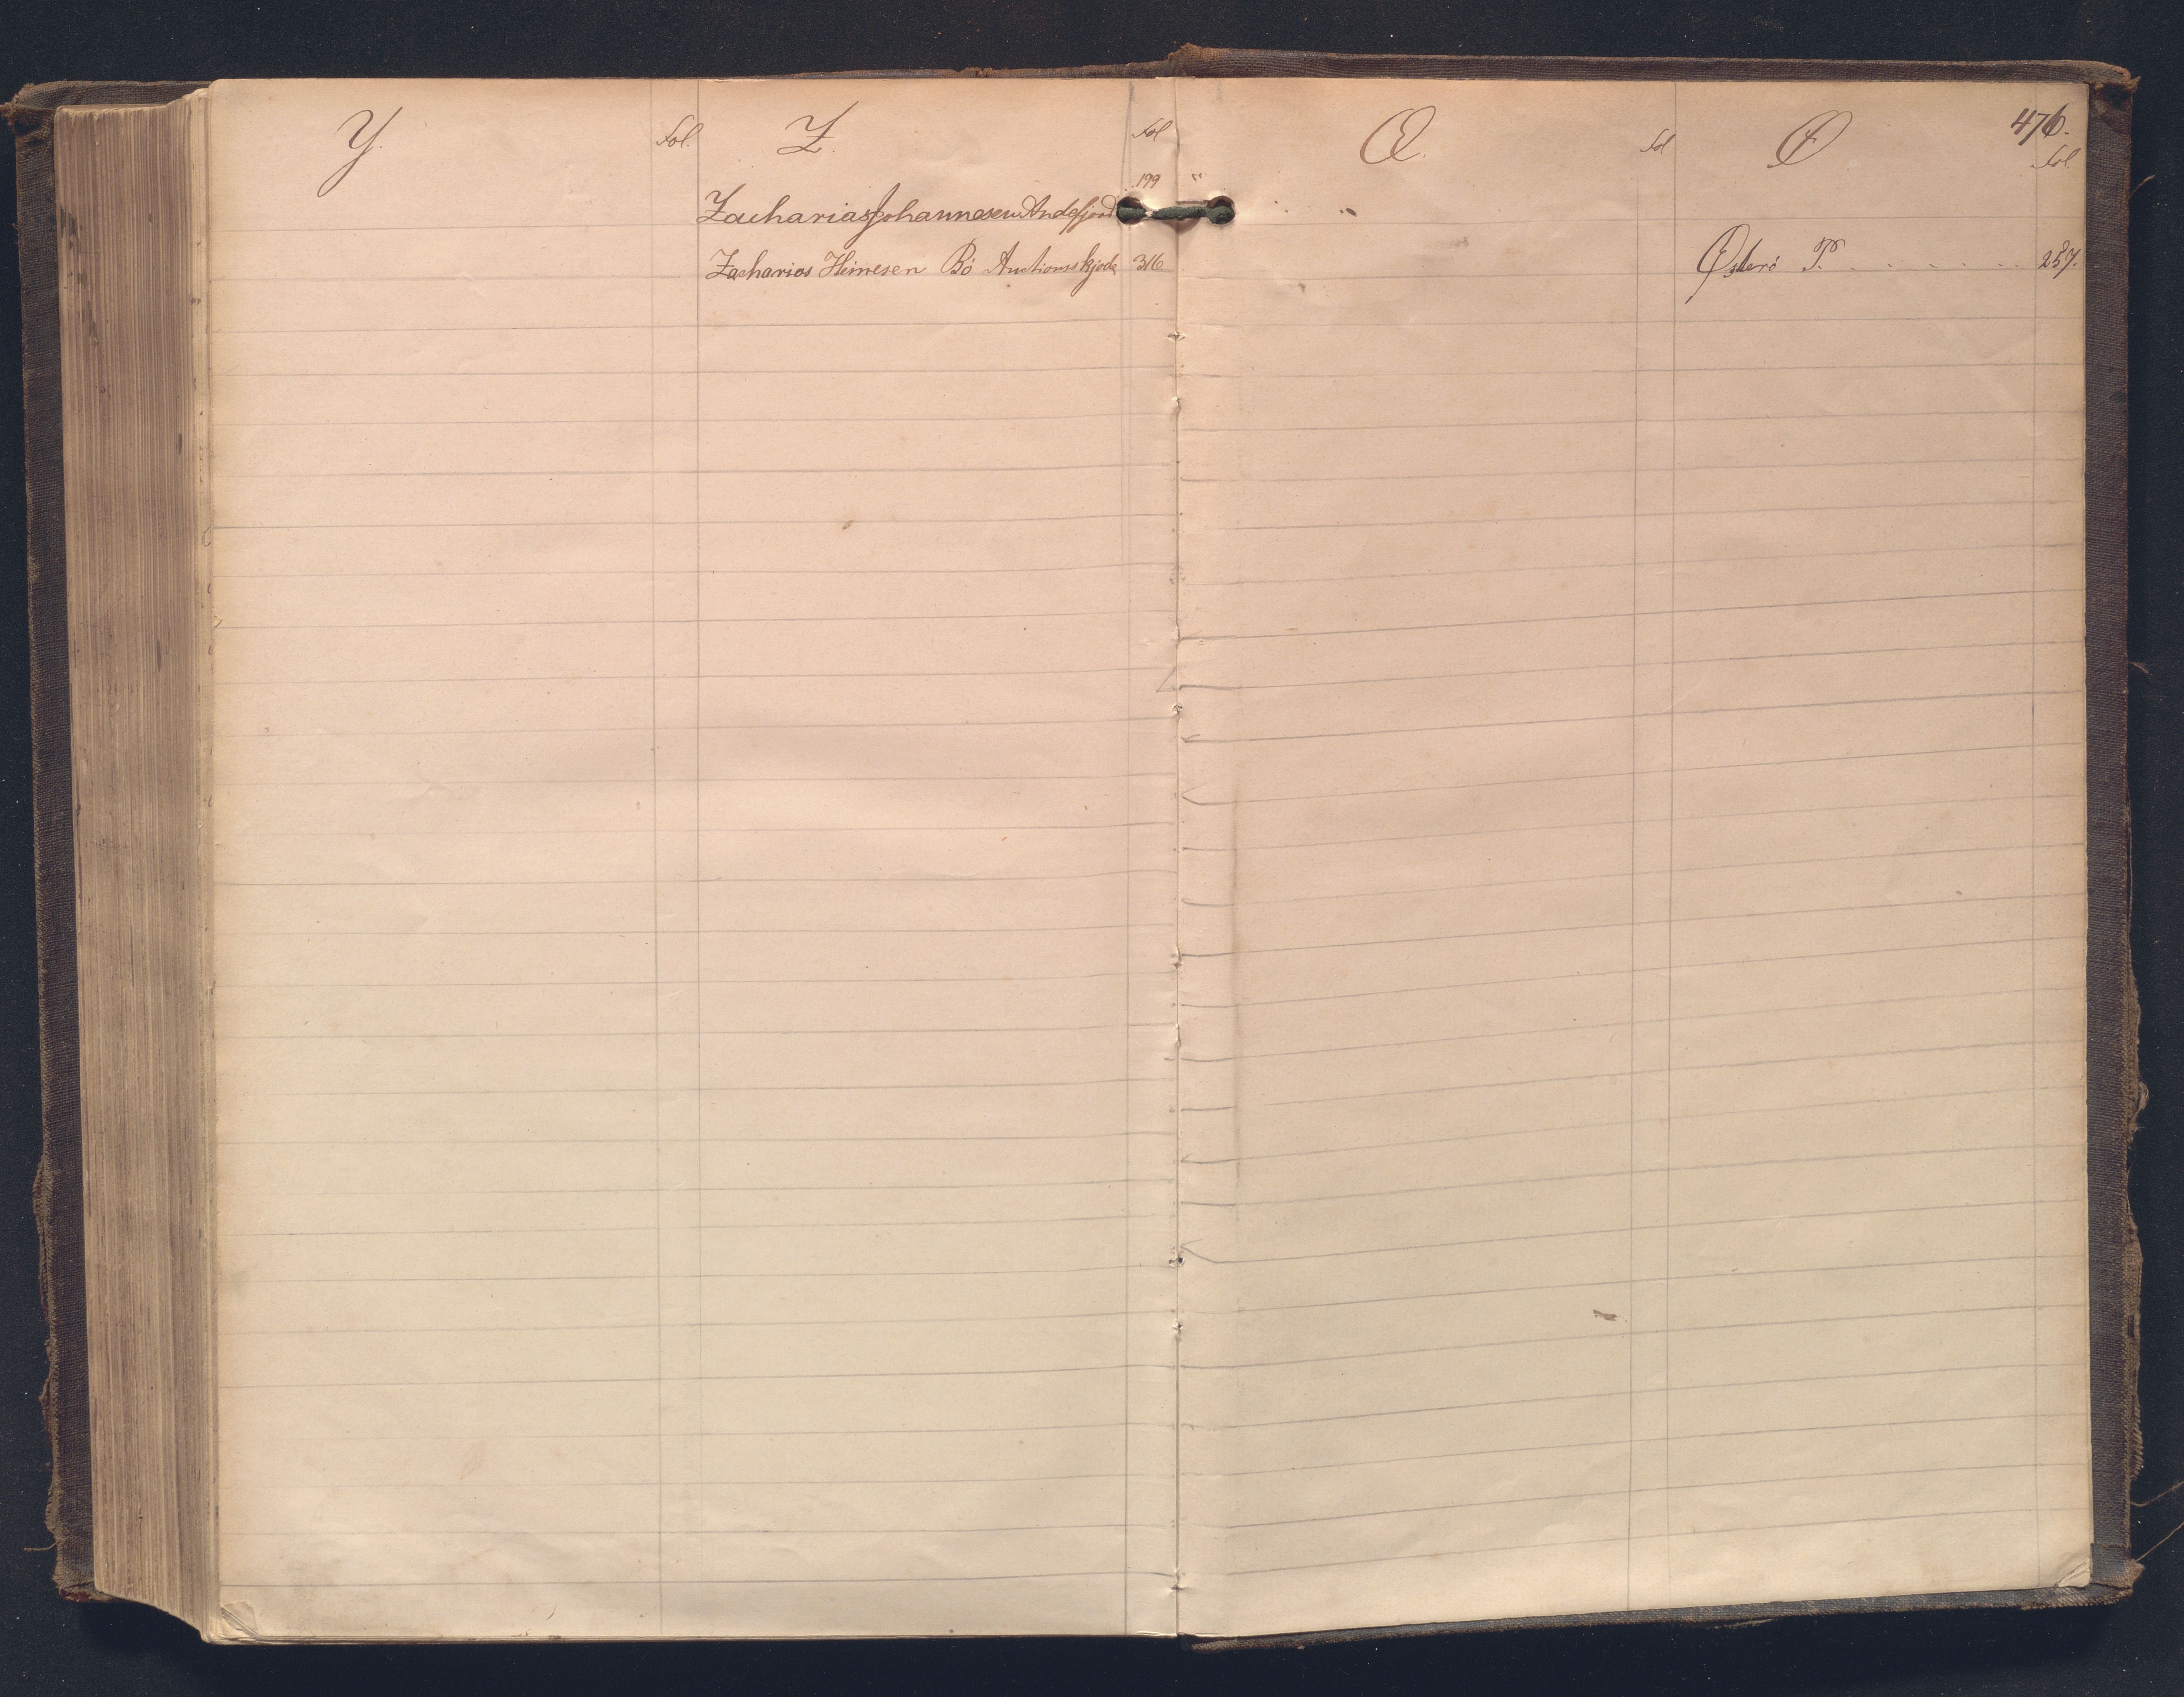 Y. Fol. Z. Fol
199 "
Zacharias Johannesen Andefjord
Zacharias Heinesen Bö Auctionsskjöde 316
Æ. Fol Ø 476.
Fol.
"
Østerö P. 257.